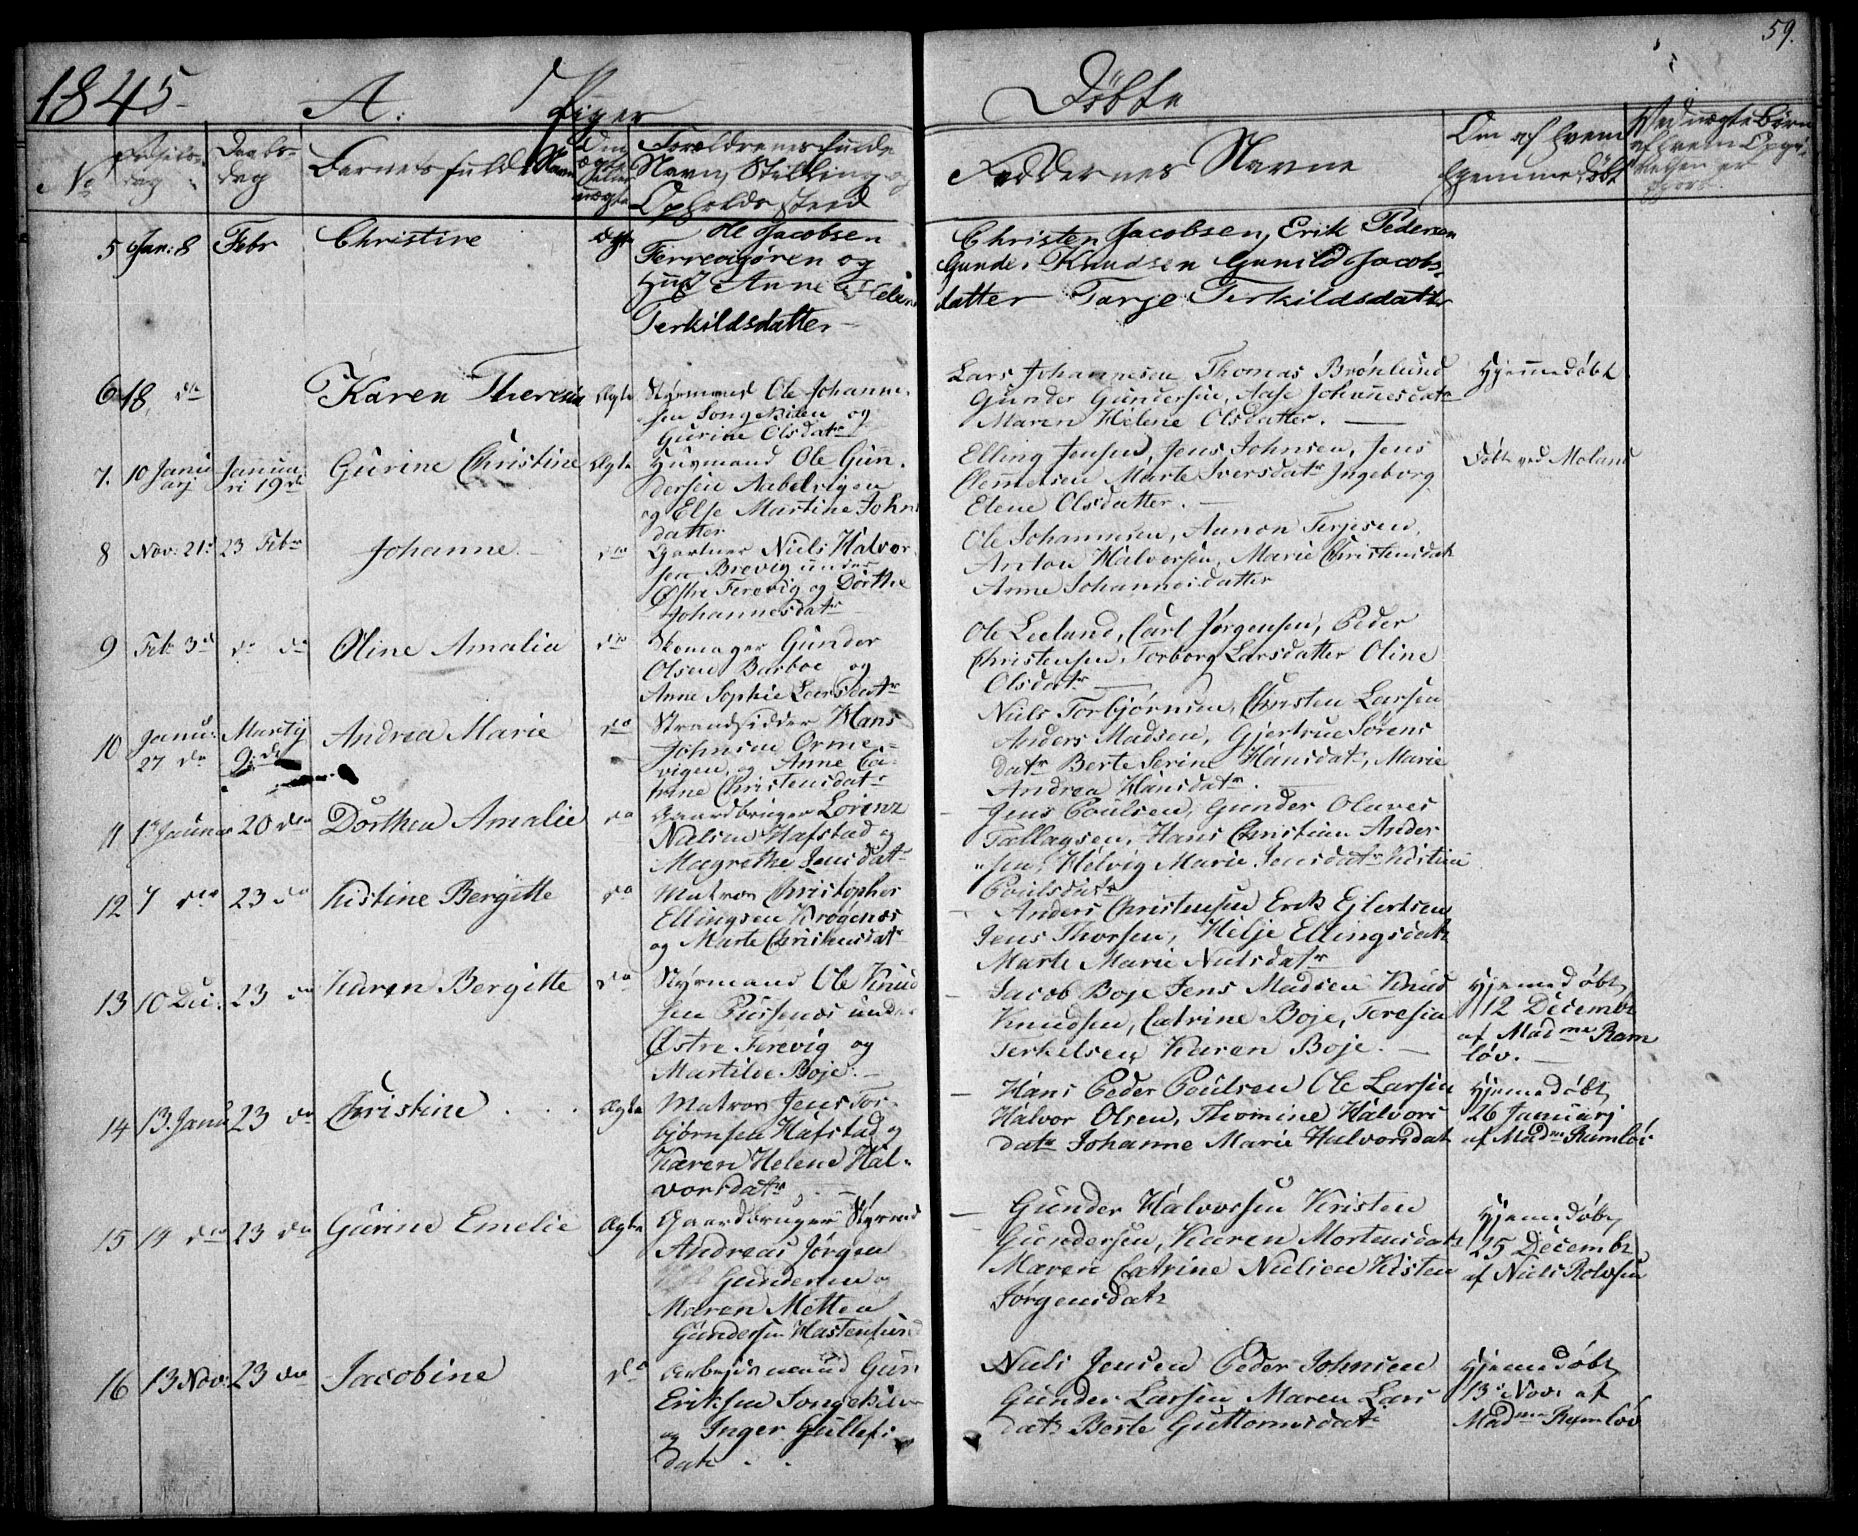 59.
1845 A. Piger Døbte
No Fødsels-dag Daabs-dag Barnets fulde Navn Om ægte eller uægte Forældrenes fulde Navn, Stilling og Opholdssted Faddernes Navne Om af hvem hjemmedøbt Ved uægte Børn af hvem Opgivelsen er gjort
5 Jan: 8 Febr Christine Ægte Ole Jacobsen
Ferrevigøren og
Anne Helene
Terkildsdatter
Christen Jacobsen, Erik Pedersen
Gunder Knudsen Gunild Jacobs-
datter Tarje Terkildsdatter
6 18 do Karen Theresia Ægte Styrmand Ole Johanne-
sen Songekilen og
Gurine Olsdatr
Lars Johannesen Thomas Brønlund
Gunder Gundersen, Aase Johannesdatr
Maren Helene Olsdatter.
Hjemmedøbt
7. 10 Janu arj Janua ri 19de Gurine Christine Ægte Huusmand Ole Gun-
dersen Nabelvigen
og Else Martine Johns
datter
Elling Jensen, Jens Johnsen, Jens
Clemmetsen Marte Iversdatr Ingeborg
Elene Olsdatter.
Døbt ved Moland
8 Nov: 21: 23 Febr Johanne do Gartner Niels Halvor-
sen Brevig under
Østre Ferevig og Dorthe
Johannesdatr
Ole Johannesen, Aanon Terjesen,
Anton Halvorsen, Marie Christensdatr
Anne Johannesdatter
9 Feb 3d do do Oline Amalia do Skomager Gunder
Olsen Barboe og
Anne Sophie Larsdatr
Ole Leelund, Carl Jørgensen, Peder
Christensen, Torborg Larsdatter Oline
Olsdatr
10 Janu: 27 do Martij 9: de Andrea Marie do Strandsidder Hans
Johnsen Orme-
vigen, og Anne Ca-
trine Christensdatr
Niels Torbjørnsen, Christen Larsen
Anders Madsen, Gjertrue Sørens
datr Berte Serine Hansdatr, Marie
Andrea Hansdatr.
11 1 Januar 20 do Dorthea Amalie do Gaardbruger Lorenz
Nielsen Hafstad og
Magrethe Jensdatr
Jens Poulsen, Gunder Olaves
Tallagsen, Hans Christian Ander
sen, Helvig Marie Jensdatr Kistine
Poulsdatr
12 7 do 23 do Kistine Bergitte do Matros Christopher
Ellingsen Krøgenes
og Marte Christensdatr
Anders Christensen Erik Ejlertsen
Jens Thorsen, Helje Ellingsdatr
Marte Marie Nielsdatr
13 10 Dec: 23 do Karen Bergitte do Styrmand Ole Knud
sen Pussenes under
Østre Ferevig og
Martilde Boje.
Jacob Boje Jens Madsen Knud
Knudsen, Catrine Boje, Teresia
Terkelsen Karen Boje.
Hjemmedøbt
12 December
af Madme Ram
løv.
14 13. Janu 23 do Christine Ægte Matros Jens Tor-
bjørnsen Hafstad og
Karen Helene Hal-
vorsdatr
Hans Peder Poulsen Ole Larsen
Halvor Olsen, Thomine Halvors
datr Johanne Marie Halvorsdatr
Hjemmedøbt
26 Januarj
af Madme Ramløv
15 14 do 23 do Gurine Emelie Ægte Gaardbruger Styrmd
Andreas Jørgen
Gundersen og
Maren Metten
Gundersen Hastensund
Gunder Halvorsen Kristen
Gundersen, Karen Mortensdatr
Maren Catrine Nielsen Kisten
Jørgensdatr
Hjemmedøbt
25 Decembr
af Niels Rolvsen
16 13 Nov: 23 do Jacobine do Arbejdsmand Gun
Eriksen Songekilen
og Inger Gullefs
datr
Niels Jensen Peder Johnsen
Gunder Larsen Maren Lars
datr Berte Guttormsdatr
Hjemmedøbt
13 Nov. af
Madme Ramløv